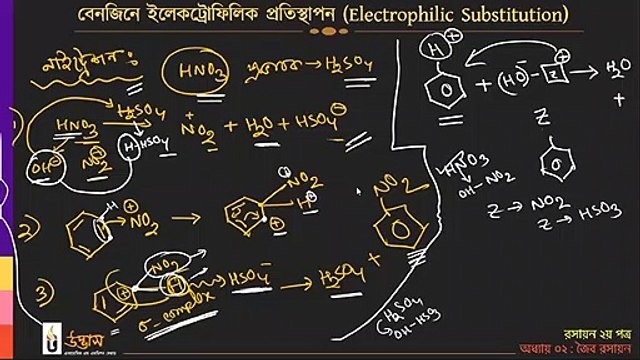 বেনজিনে ইলেকট্রোফিলিক প্রতিস্থাপন (Electrophilic Substitution)
নাইট্রেশন: HNO₃ প্রভাবক → H₂SO₄
1) HNO₃ H₂SO₄ → NO₂⁺ + H₂O + HSO₄⁻
OH⁻ NO₂⁺ H-HSO₄
2) H NO₂⁺ → NO₂ H
3) NO₂ H HSO₄⁻ → H₂SO₄ + NO₂
σ-complex
H + (HO)⁻ - Z⁺ → H₂O
+
Z
HNO₃
OH-NO₂
Z → NO₂
Z → HSO₃
H₂SO₄
OH-HSO₃
উদ্ভাস
রসায়ন ২য় পত্র
অধ্যায় ০২ : জৈব রসায়ন